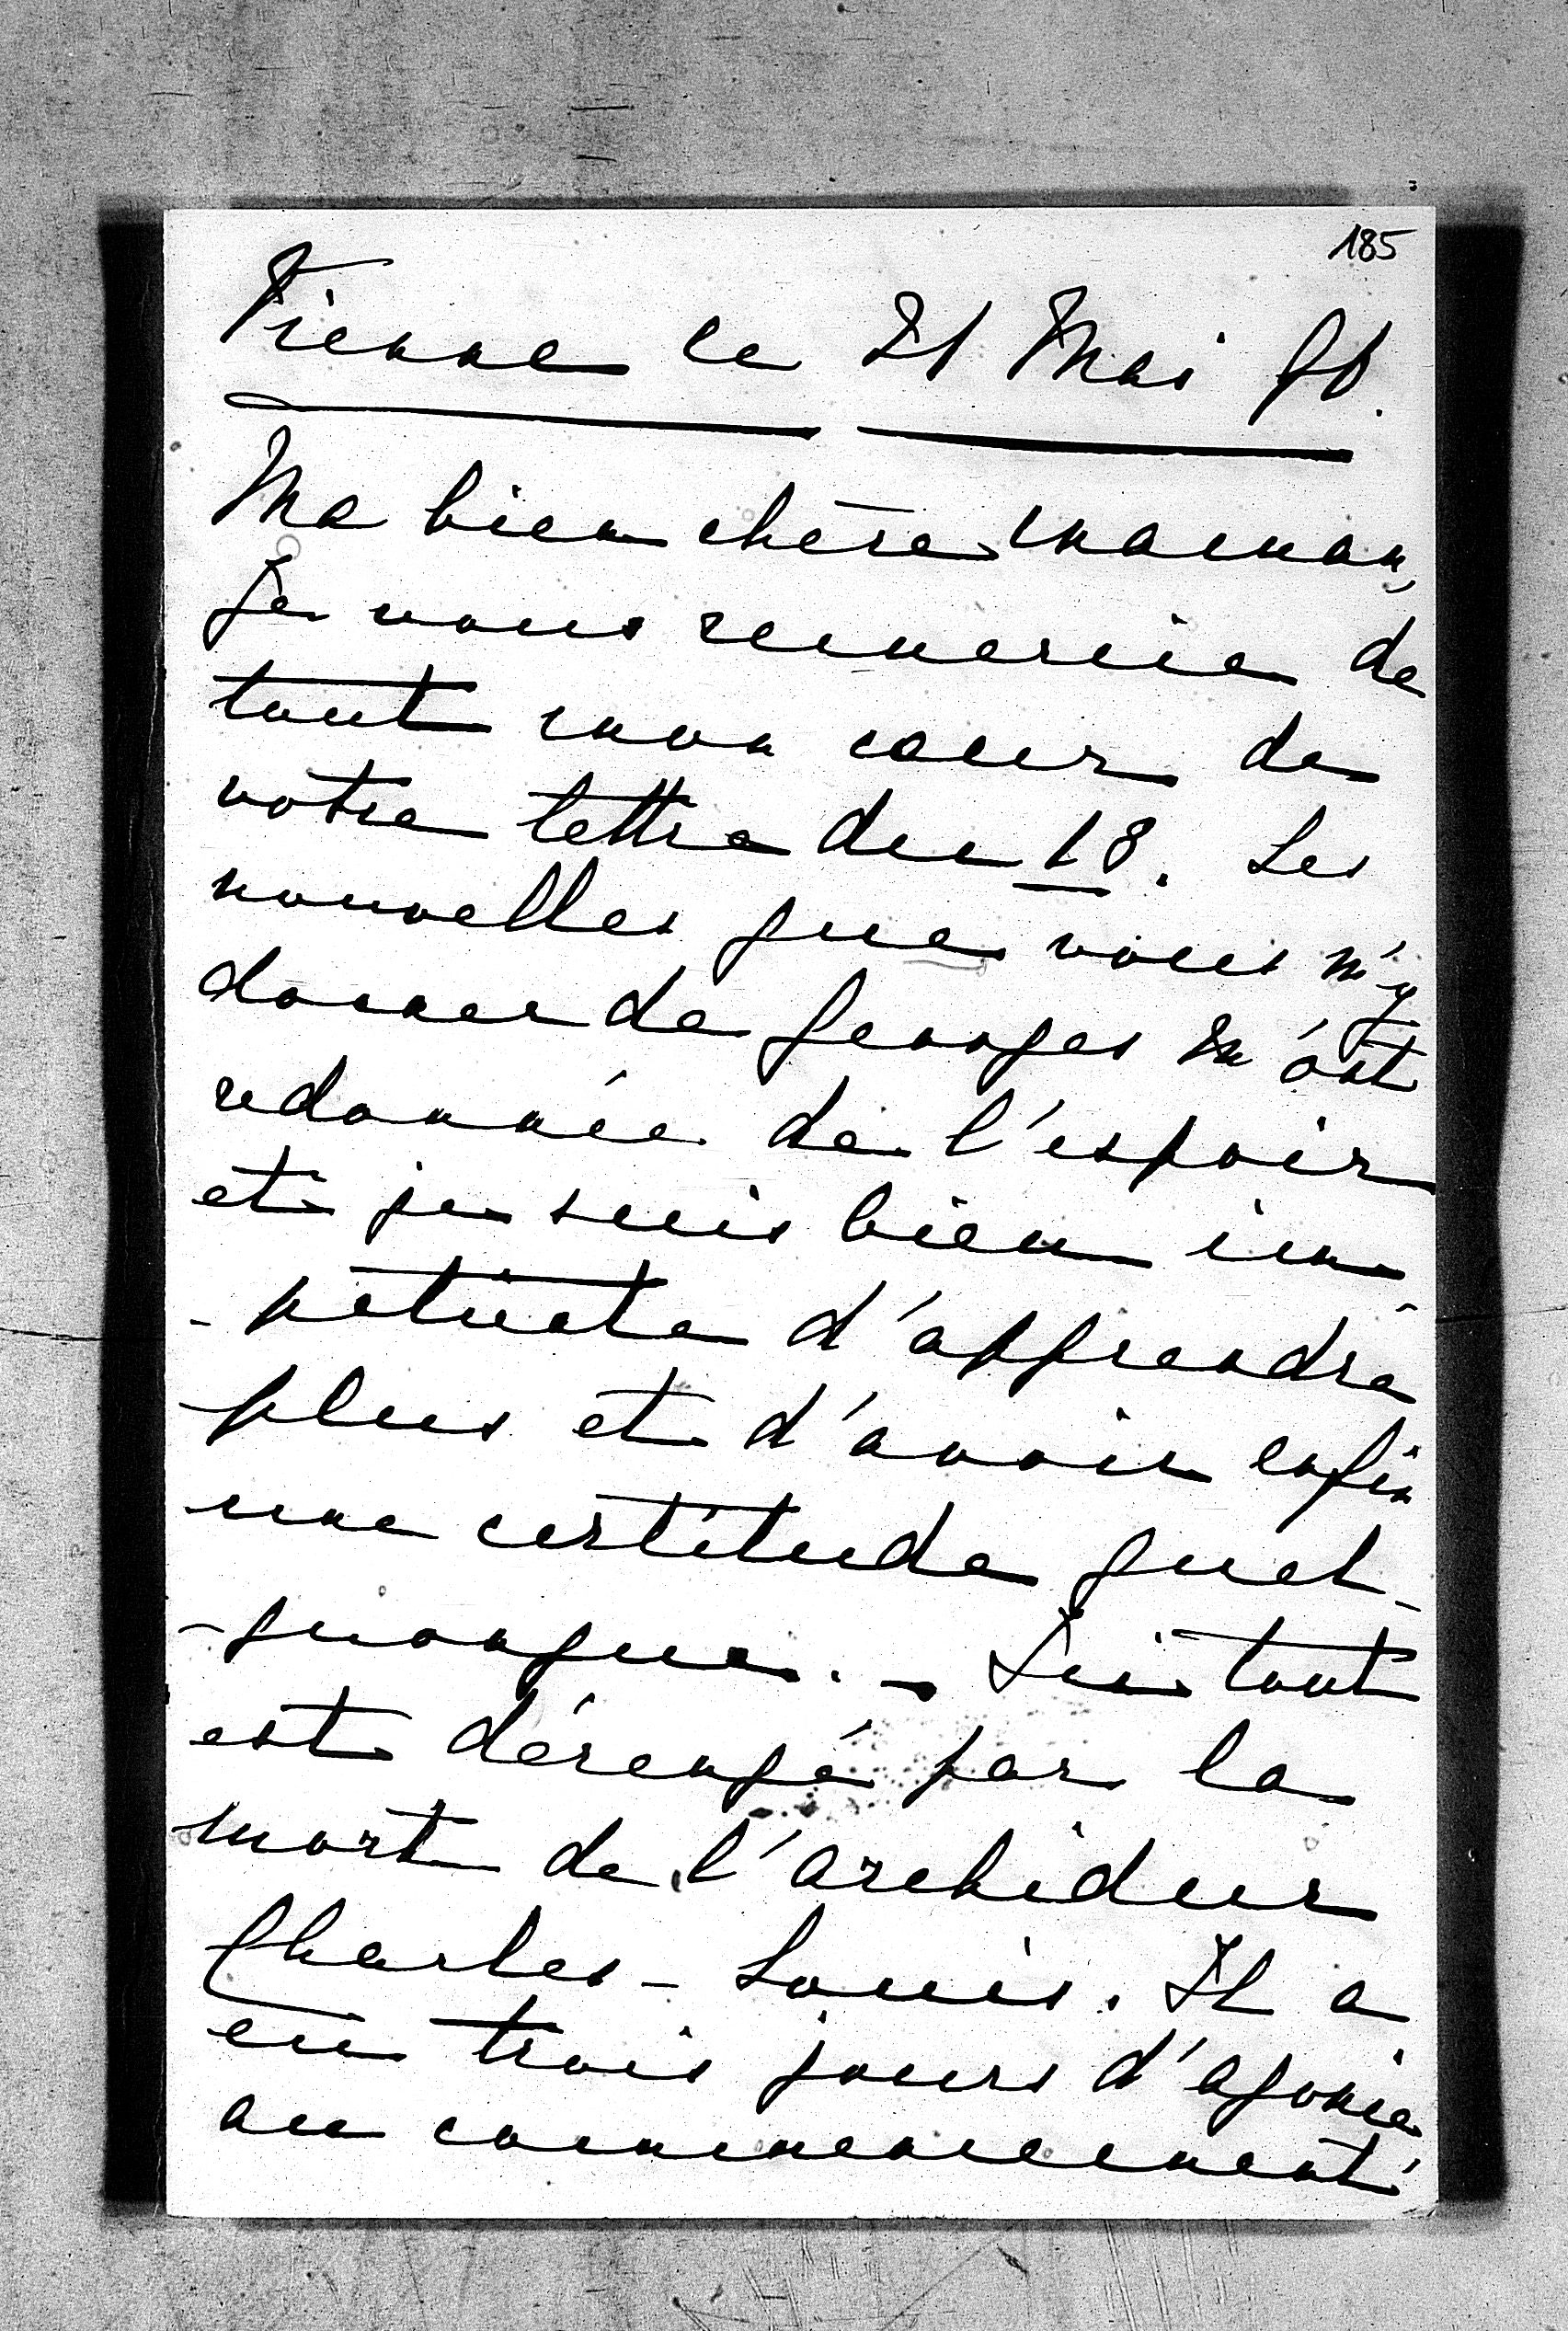 185
Vienne ce 21 Mai 96.
Ma bien chère maman,
Je vous remercie de
tout mon coeur de
votre lettre du 18. Les
nouvelles que vous m'y
donner de Georges m'ont
redonnée de l'espoir
et je suis bien im-
-patiente d'apprendre
plus et d'avoir enfin
une certitude quel-
-quonque. - Ici tout
est dérangé par la
mort de l'archiduc
Charles-Louis. Il a
eu trois jours d'agonie
au commencement